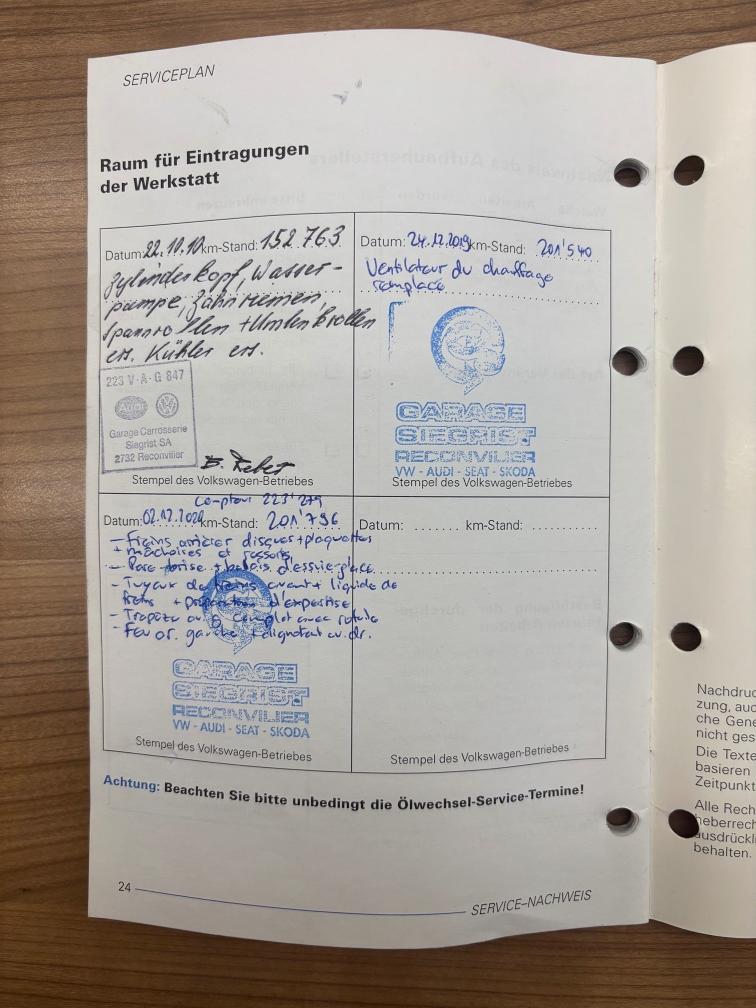 SERVICEPLAN
Raum für Eintragungen
der Werkstatt
Datum: 22.10.10 km-Stand: 152.763
Zylinderkopf, Wasser-
pumpe, Zahnriemen,
Spannrollen + Umlenkrollen
ers. Kühler ers.
223 V·A·G 847
Audi
Garage Carrosserie
Siegrist SA
2732 Reconvilier
Stempel des Volkswagen-Betriebes
Datum: 24.12.2019 km-Stand: 201'540
Ventilateur du chauffage
remplacé
GARAGE
SIEGRIST
RECONVILIER
VW - AUDI - SEAT - SKODA
Stempel des Volkswagen-Betriebes
compteur 223'279
Datum: 02.12.2020 km-Stand: 201'796
- Freins arrièrer disques + plaquettes
+ mâchoires et ressorts
- Pare-brise + balais d'essuie-glace
- Tuyaux de freins avant + liquide de
freins + préparation d'expertise
- Trapèze av. g complet avec rotule
- Feu ar. gauche + clignotant av. dr.
GARAGE
SIEGRIST
RECONVILIER
VW - AUDI - SEAT - SKODA
Stempel des Volkswagen-Betriebes
Datum: ....... km-Stand: ..........
Stempel des Volkswagen-Betriebes
Achtung: Beachten Sie bitte unbedingt die Ölwechsel-Service-Termine!
24
SERVICE–NACHWEIS
Nachdruc
zung, auc
che Gene
nicht ges
Die Texte
basieren
Zeitpunkt
Alle Rech
heberrech
ausdrückli
behalten.